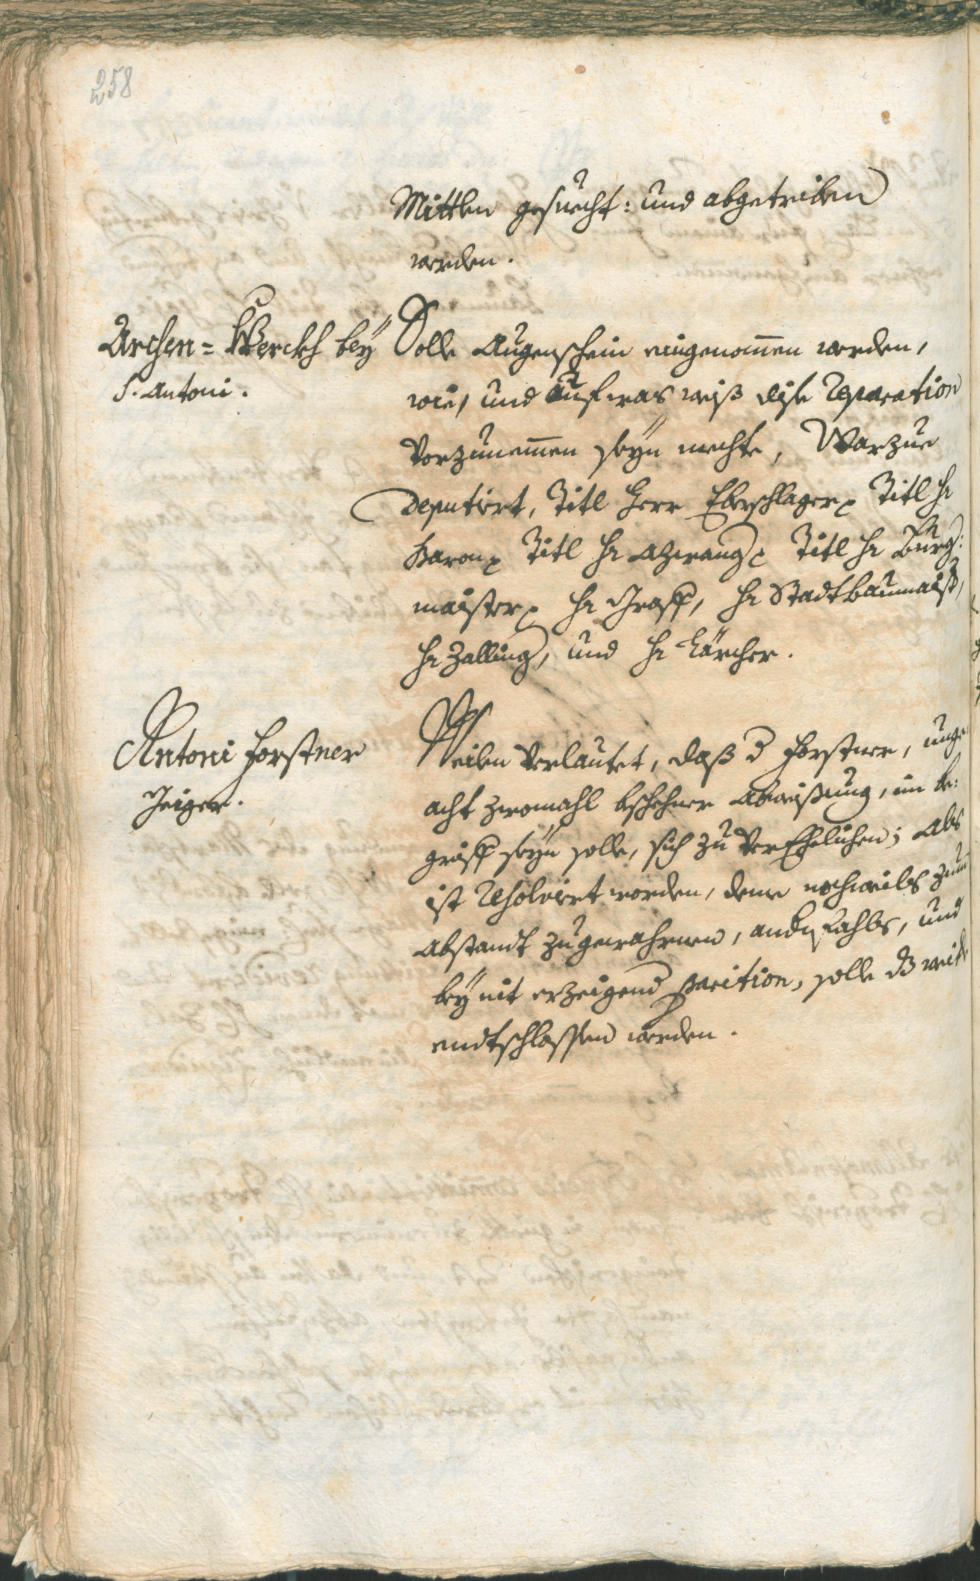 258
Mittlen gesuecht: und abgetriben
werden.
Archen=Werckh bey
S. Antoni.
Solle Augenschein eingenommen werden,
wie, und auf was weiß dise Reparation
Vorzunemmen seyn mechte, Warzue
Deputirt, Titl Herr Eberschlager Titl H
Baron Titl H Azwang Titl H Burg:
maister H Graff, H Stadtbaumaist,
H Zalling, und H Lärcher.
Antoni Forstner
Geiger.
Weilen Verlautet, daß d Forstner, unge
acht zwomahl beschehner Abweißung, im be:
griff seyn solle, sich zu Verehelichen; Als
ist resolvirt worden, deme nochmals zum
Abstandt zugewahrnen, andfahls, und
bey nit erzeigend parition, solle dz weit
endtschlossen werden.